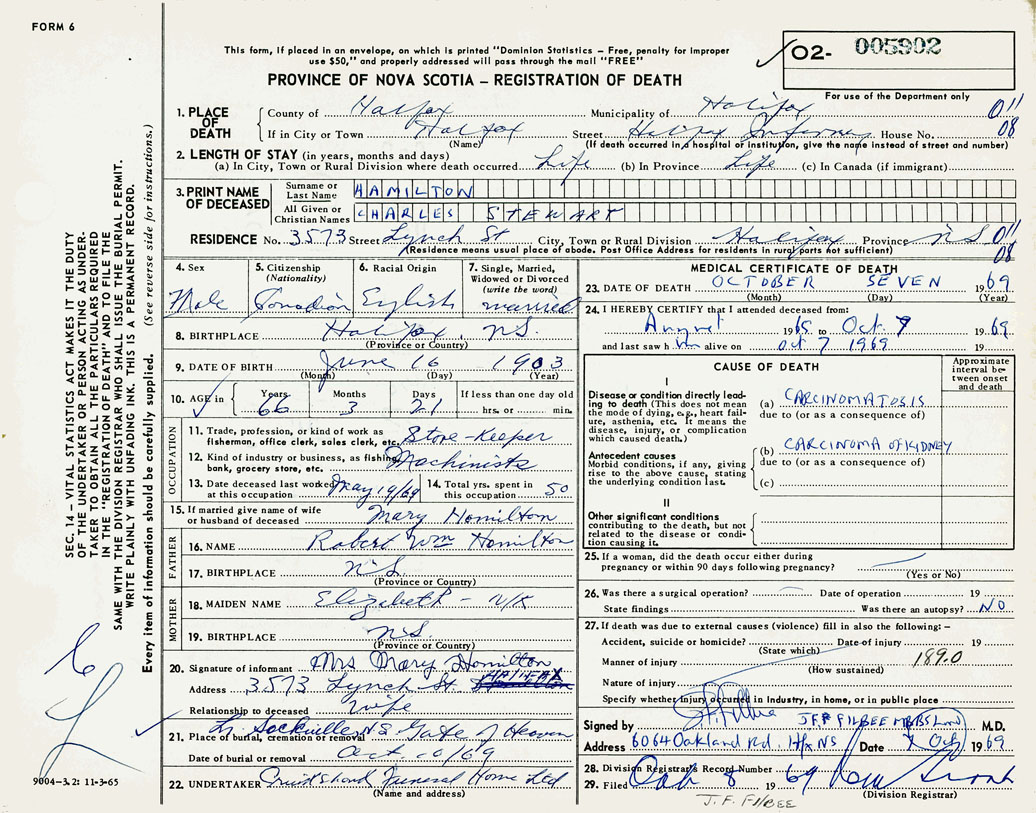 FORM 6
This form, if placed in an envelope, on which is printed "Dominion Statistics – Free, penalty for improper
use $50," and properly addressed will pass through the mail "FREE"
PROVINCE OF NOVA SCOTIA – REGISTRATION OF DEATH
02- 005902
For use of the Department only
1. PLACE OF DEATH
County of Halifax Municipality of Halifax 011
If in City or Town Halifax Street Halifax Infirmary House No. 08
(Name) (If death occurred in a hospital or institution, give the name instead of street and number)
2. LENGTH OF STAY (in years, months and days)
(a) In City, Town or Rural Division where death occurred Life (b) In Province Life (c) In Canada (if immigrant)
3. PRINT NAME OF DECEASED
Surname or Last Name HAMILTON
All Given or Christian Names CHARLES STEWART
RESIDENCE No. 3573 Street Lynch St City, Town or Rural Division Halifax Province NS 011
(Residence means usual place of abode. Post Office Address for residents in rural parts not sufficient) 08
4. Sex Male
5. Citizenship (Nationality) Canadian
6. Racial Origin English
7. Single, Married, Widowed or Divorced (write the word) married
8. BIRTHPLACE Halifax NS.
(Province or Country)
9. DATE OF BIRTH June 16 1903
(Month) (Day) (Year)
10. AGE in Years 66 Months 3 Days 21 If less than one day old hrs. or min.
OCCUPATION
11. Trade, profession, or kind of work as fisherman, office clerk, sales clerk, etc. Store-Keeper
12. Kind of industry or business, as fishing, bank, grocery store, etc. Machinists
13. Date deceased last worked at this occupation May 19/69
14. Total yrs. spent in this occupation 50
15. If married give name of wife or husband of deceased Mary Hamilton
FATHER
16. NAME Robert Wm Hamilton
17. BIRTHPLACE NS
(Province or Country)
MOTHER
18. MAIDEN NAME Elizabeth - U/K
19. BIRTHPLACE NS.
(Province or Country)
20. Signature of informant Mrs Mary Hamilton
Address 3573 Lynch St. HALIFAX
Relationship to deceased wife
21. Place of burial, cremation or removal Lr. Sackville NS Gate of Heaven
Date of burial or removal Oct 10/69
22. UNDERTAKER Cruikshank Funeral Home Ltd
(Name and address)
MEDICAL CERTIFICATE OF DEATH
23. DATE OF DEATH OCTOBER SEVEN 1969
(Month) (Day) (Year)
24. I HEREBY CERTIFY that I attended deceased from:
August 1965 to Oct. 7 1969
and last saw him alive on Oct 7 1969 19
CAUSE OF DEATH
Approximate interval between onset and death
I
Disease or condition directly leading to death (This does not mean the mode of dying, e.g., heart failure, asthenia, etc. It means the disease, injury, or complication which caused death.)
(a) CARCINOMATOSIS
due to (or as a consequence of)
Antecedent causes
Morbid conditions, if any, giving rise to the above cause, stating the underlying condition last.
(b) CARCINOMA OF KIDNEY
due to (or as a consequence of)
(c)
II
Other significant conditions
contributing to the death, but not related to the disease or condition causing it.
25. If a woman, did the death occur either during
pregnancy or within 90 days following pregnancy?
(Yes or No)
26. Was there a surgical operation? Date of operation 19
State findings Was there an autopsy? NO
27. If death was due to external causes (violence) fill in also the following:–
Accident, suicide or homicide? Date of injury 19
(State which)
Manner of injury 189.0
(How sustained)
Nature of injury
Specify whether injury occurred in industry, in home, or in public place
Signed by J F P FILBEE M.D.
Address 6064 Oakland Rd. Hfx NS Date 7 Oct 1969
28. Division Registrar's Record Number
29. Filed Oct 8 1969
(Division Registrar)
J. F. FILBEE
SEC. 14 – VITAL STATISTICS ACT MAKES IT THE DUTY
OF THE UNDERTAKER OR PERSON ACTING AS UNDER-
TAKER TO OBTAIN ALL THE PARTICULARS REQUIRED
IN THE "REGISTRATION OF DEATH" AND TO FILE THE
SAME WITH THE DIVISION REGISTRAR WHO SHALL ISSUE THE BURIAL PERMIT.
WRITE PLAINLY WITH UNFADING INK. THIS IS A PERMANENT RECORD.
Every item of information should be carefully supplied. (See reverse side for instructions.)
9004-3.2: 11-3-65